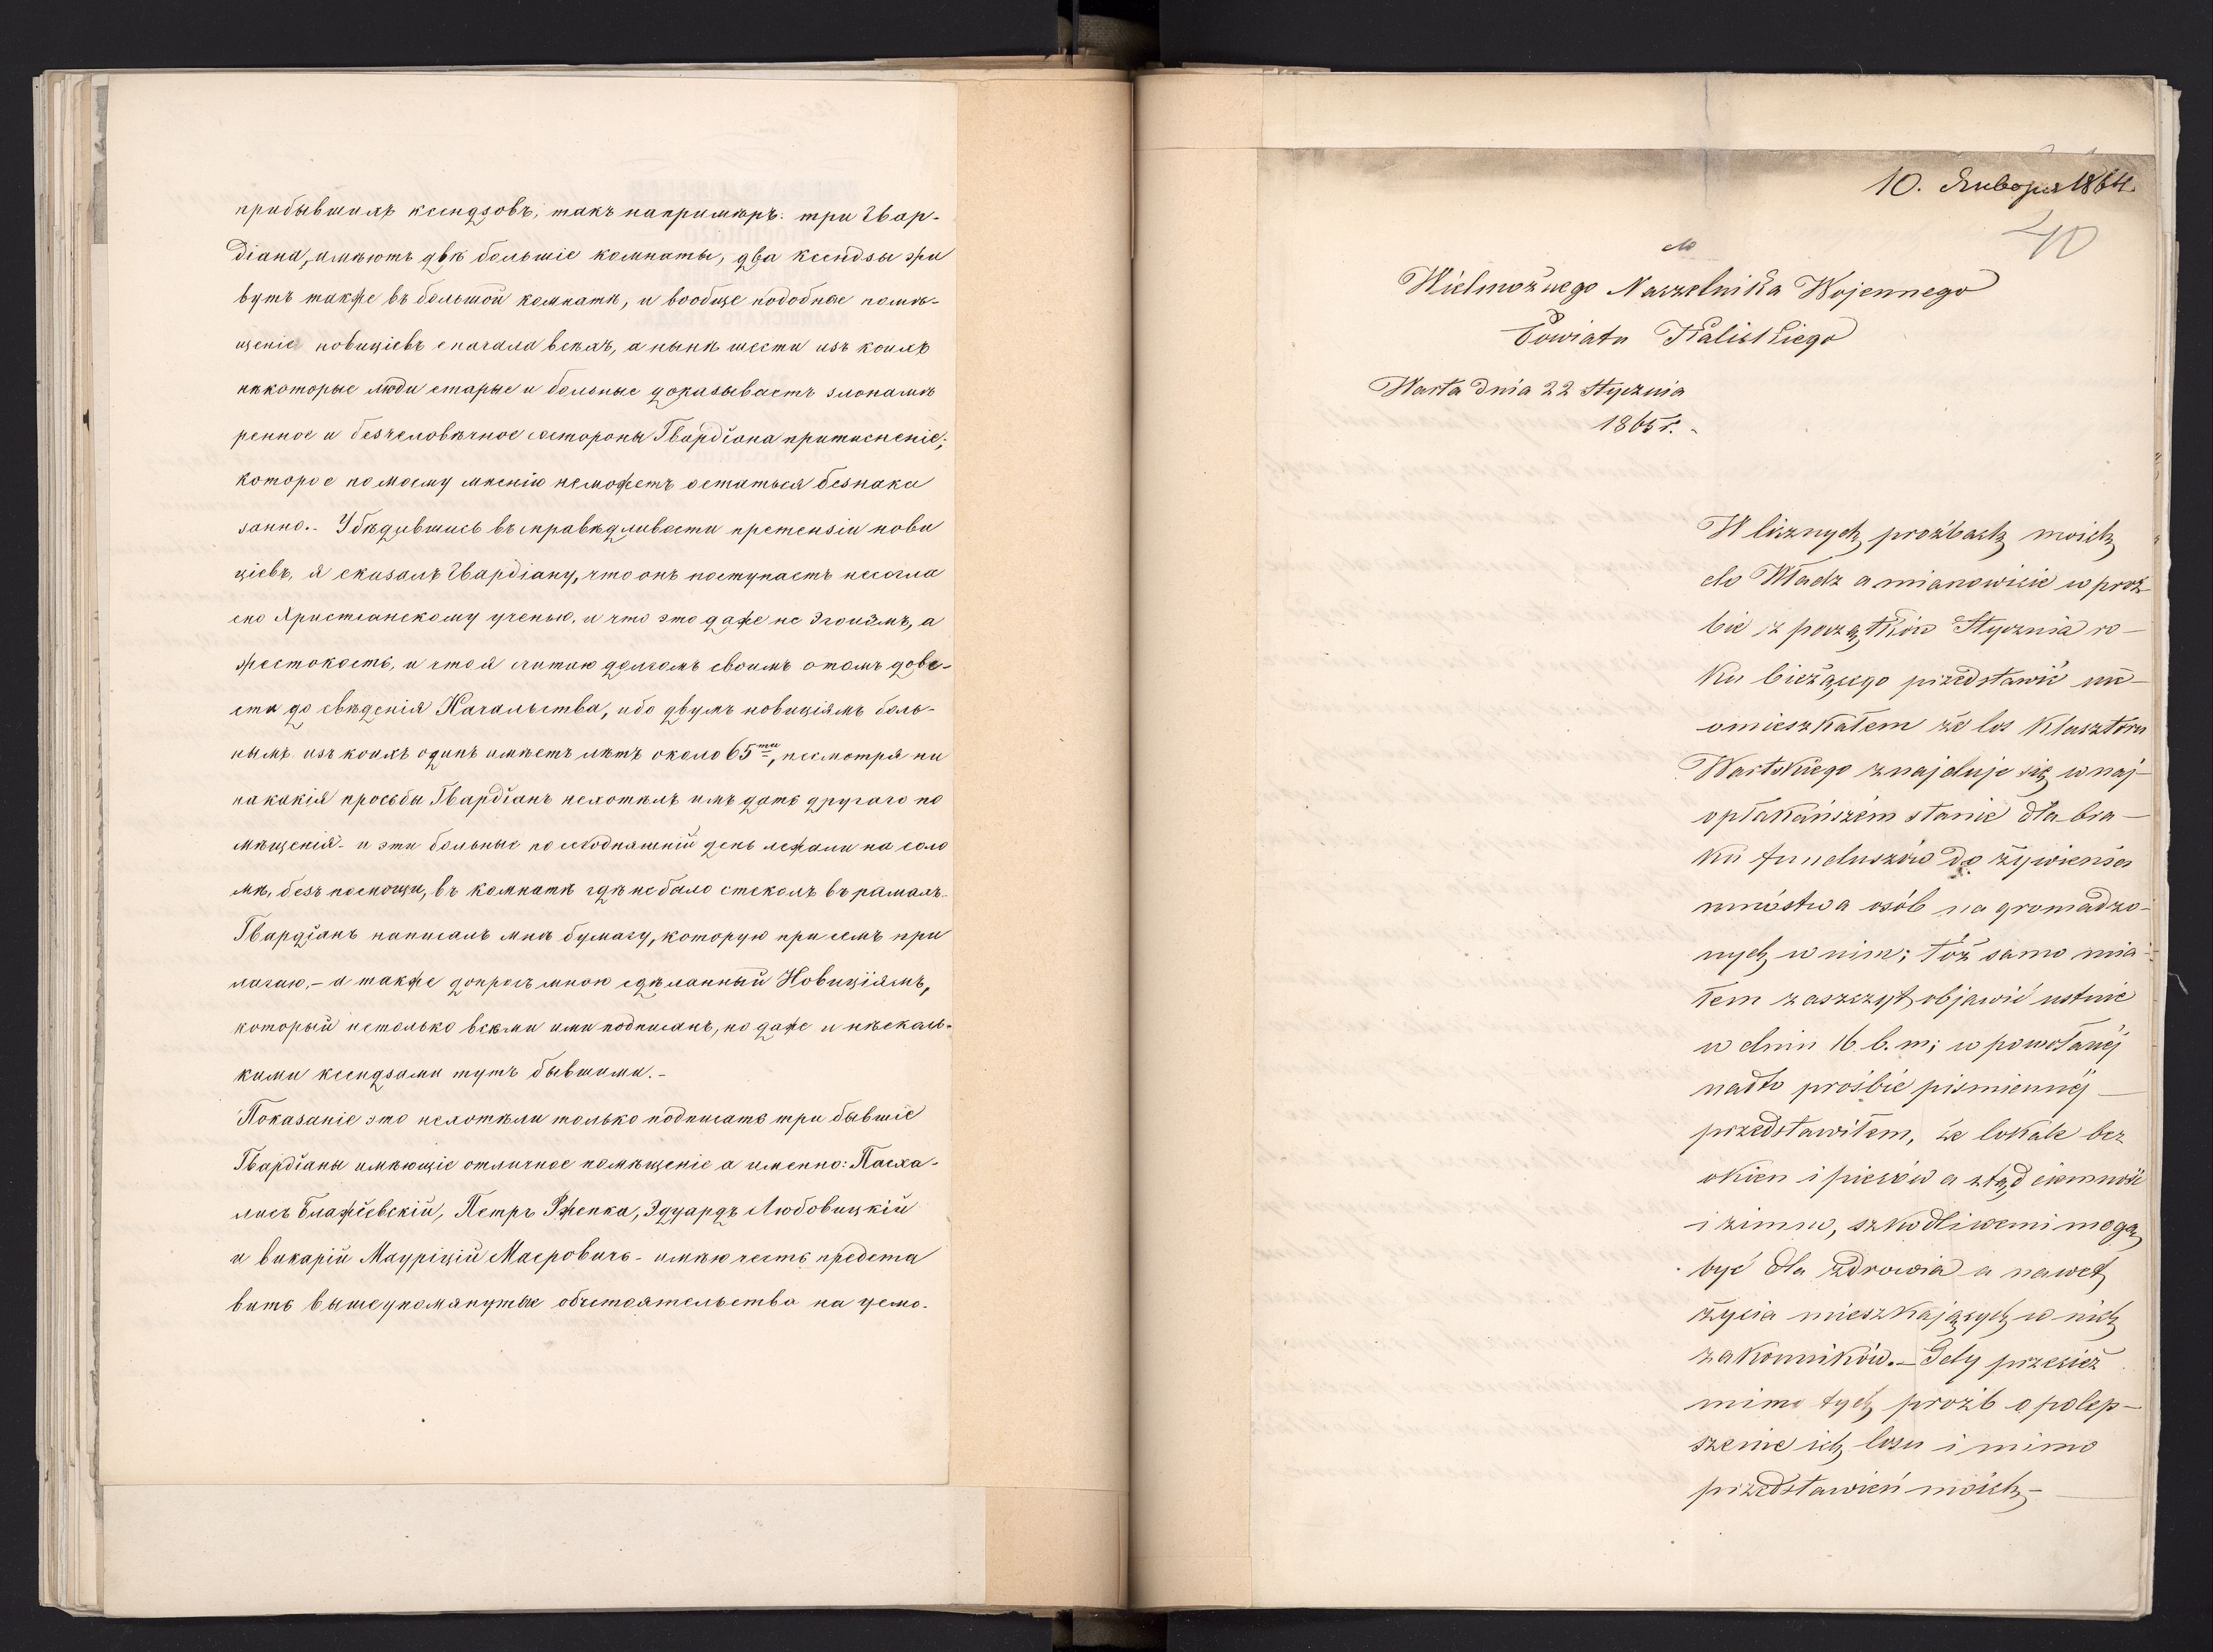 прибывшихъ ксендзовъ, такъ напримѣръ: три Гвар-
діана, имѣютъ двѣ большіе комнаты, два ксендзы жи
вутъ также въ большой комнатѣ, и вообще подобное помѣ-
щеніе новиціевъ сначала всѣхъ, а нынѣ шести изъ коихъ
нѣкоторые люди старые и больные доказываетъ злонамѣ
ренное и безчеловѣчное состороны Гвардіана притисненіе;
которое по моему мнѣнію неможетъ остаться безнака
занно.- Убѣдившись въ справѣдливости претензіи нови
ціевъ, я сказалъ Гвардіану, что онъ поступаетъ несогла
сно Християнскому ученью, и что это даже не эгоизмъ, а
жестокость, и что я считаю долгомъ своимъ отомъ дове-
сти до свѣденія Начальства, ибо двумъ новиціямъ боль-
нымъ изъ коихъ одинъ имѣетъ лѣтъ около 65ти, несмотря ни
на какія просьбы Гвардіанъ нехотѣлъ имъ дать другого по
мѣщенія- и эти больные по сегодняшній день лежали на соло
мѣ, безъ помощи, въ комнатѣ гдѣ небыло стеколъ въ рамахъ.
Гвардіанъ написалъ мнѣ бумагу, которую при семъ при
лагаю,- а также допросъ мною сдѣланный Новиціямъ,
который нетолько всѣми ими подписанъ, но даже и нѣсколь-
кими ксендзами тутъ бывшими.-
Показаніе это нехотѣли только подписать три бывшіе
Гвардіаны имѣющіе отличное помѣщеніе а именно: Пасха-
лисъ Блажѣевскій, Петръ Ржепка, Эдуардъ Любовицкій
и викарій Мауріцій Маеровичъ- имѣю честь предста
вить вышеупомянутые обстоятельства на усмо-
10. Января 1864.
40
Do
Wielmożnego Naczelnika Wojennego
Powiatu Kaliskiego
Warta dnia 22 Stycznia
1865 r.
W licznych proźbach moich
do Władz a mianowicie w proź
bie z początków Stycznia ro-
ku bieżącego przedstawić nie-
omieszkałem że los Klasztoru
Wartskiego znajduje się w naj-
opłakańszém stanie dla bra-
ku funduszów do żywienia
mnóstwa osób na gromadzo-
nych w nim; tóż samo mia-
łem zaszczyt objawić ustnie
w dniu 16. b. m; w powołanéj
nadto prośbie piśmiennéj
przedstawiłem, że lokale bez
okien i pieców a ztąd ciemność
i zimno, szkodliwemi mogą
być dla zdrowia a nawet
życia mieszkających w nich
zakonników.- Gdy przecież
mimo tych proźb o polep-
szenie ich losu i mimo
przedstawień moich-